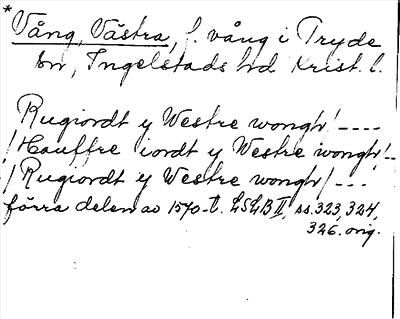 * Vång, Västra, f. vång i Tryde
sn, Ingelstads hd Krist. l.
Rugiordt y Westre wongh/----
/Hauffre iordt y Westre wongh/--
/Rugiordt y Westre wongh/---
förra delen av 1570-t. LSLB II, ss. 323, 324,
326. orig.